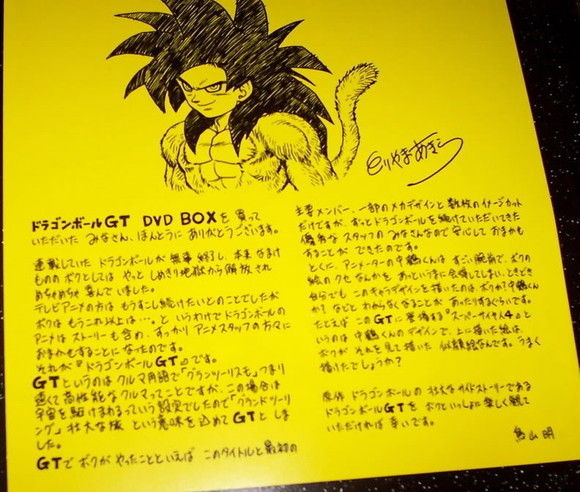 とりやまあきら
ドラゴンボールGT DVD BOXを 買って
いただいた みなさん、ほんとうに ありがとうございます。
連載していた ドラゴンボールが 無事 終了し、本来 なまけ
ものの ボクとしては やっと しめきり地獄から 解放され
めちゃめちゃ 喜んで いました。
テレビアニメの方は もうすこし続けたいとのことでしたが
ボクは もうこれ以上は…。と いうわけで ドラゴンボールの
アニメは ストーリーも含め、すっかり アニメスタッフの方々に
おまかせすることに なったのです。
それが『ドラゴンボールGT』です。
GTというのは クルマ用語で「グランツーリスモ」つまり
速くて高性能なクルマってことですが、この場合は
宇宙を駆けまわるっていう設定でしたので「グランドツーリ
ング」、壮大な旅 という意味を込めて GTとしま
した。
GTで ボクがやったことといえば このタイトルと 最初の
主要メンバー、一部のメカデザインと 数枚のイメージカット
だけですが、ずっとドラゴンボールを続けていただいてきた
優秀な スタッフの みなさんなので安心して おまかせ
することが できたのです。
とくに、アニメーターの中鶴くんは すごい腕前で、ボクの
絵の クセ なんかを あっというまに会得してしまい、ときどき
自分でも このキャラデザインを 描いたのは、ボクか?中鶴くん
か? などと わからなくなることが あったりするぐらいです。
たとえば このGTに登場する『スーパーサイヤ人4』と
いうのは 中鶴くんの デザインで、上に描いた絵は、
ボクが それを見て描いた 似顔絵なんです。うまく
描けたでしょうか?
原作 ドラゴンボールの 壮大なサイドストーリーである
ドラゴンボールGTを ボクといっしょに 楽しく観て
いただければ 幸いです。
鳥山 明